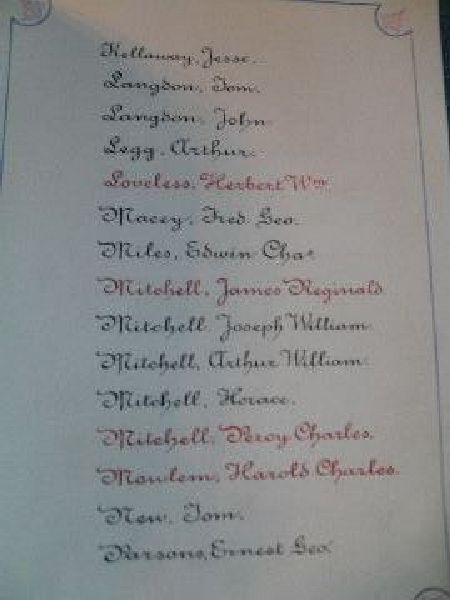 Kellaway, Jesse.
Langdon, Tom.
Langdon, John
Legg, Arthur.
Loveless, Herbert Wm.
Macey, Fred. Geo.
Miles, Edwin Chas
Mitchell, James Reginald
Mitchell Joseph William
Mitchell, Arthur William
Mitchell, Horace.
Mitchell, Percy Charles.
Mowlem, Harold Charles.
New, Tom.
Parsons, Ernest Geo.